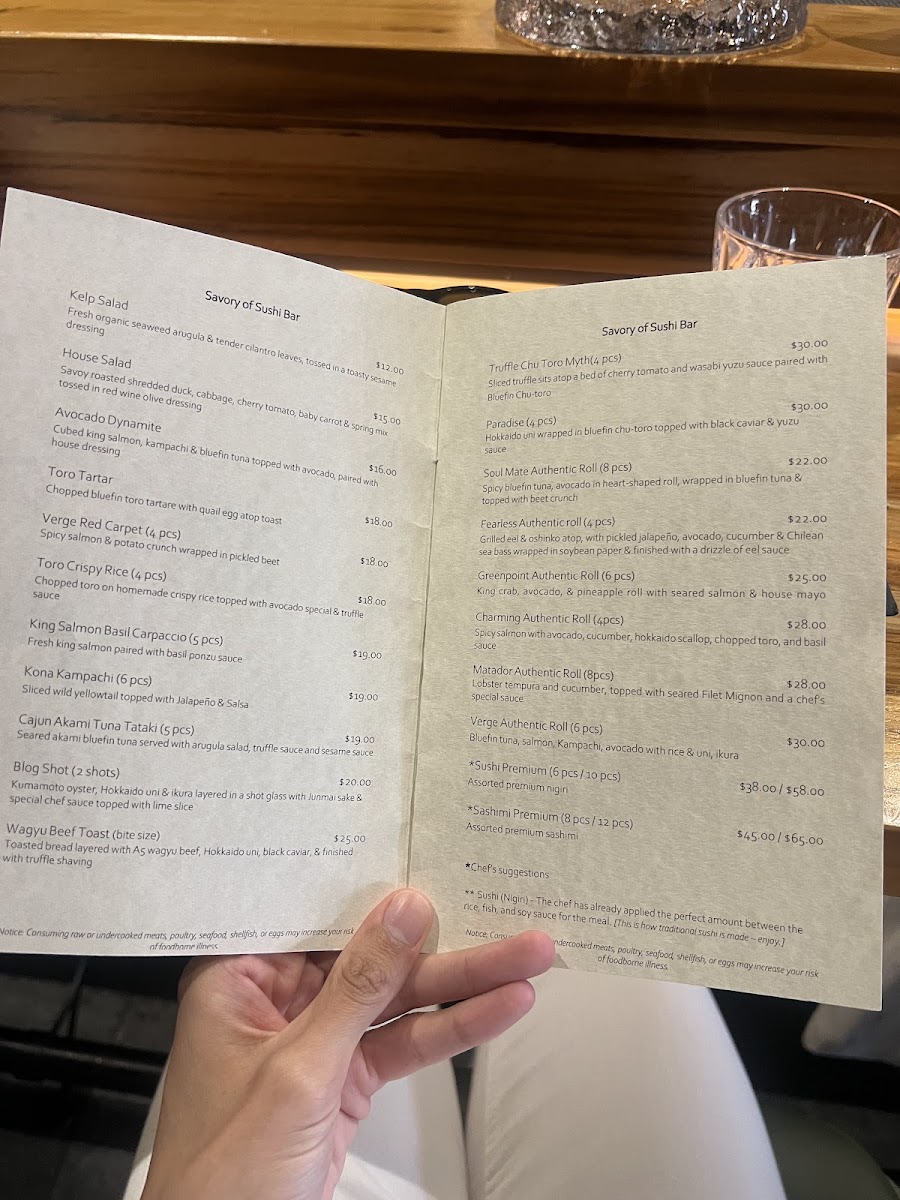 Savory of Sushi Bar
Kelp Salad
$12.00
Fresh organic seaweed arugula & tender cilantro leaves, tossed in a toasty sesame
dressing
House Salad
$15.00
Savoy roasted shredded duck, cabbage, cherry tomato, baby carrot & spring mix
tossed in red wine olive dressing
Avocado Dynamite
$16.00
Cubed king salmon, kampachi & bluefin tuna topped with avocado, paired with
house dressing
Toro Tartar
$18.00
Chopped bluefin toro tartare with quail egg atop toast
Verge Red Carpet (4 pcs)
$18.00
Spicy salmon & potato crunch wrapped in pickled beet
Toro Crispy Rice (4 pcs)
$18.00
Chopped toro on homemade crispy rice topped with avocado special & truffle
sauce
King Salmon Basil Carpaccio (5 pcs)
$19.00
Fresh king salmon paired with basil ponzu sauce
Kona Kampachi (6 pcs)
$19.00
Sliced wild yellowtail topped with Jalapeño & Salsa
Cajun Akami Tuna Tataki (5 pcs)
$19.00
Seared akami bluefin tuna served with arugula salad, truffle sauce and sesame sauce
Blog Shot (2 shots)
$20.00
Kumamoto oyster, Hokkaido uni & ikura layered in a shot glass with Junmai sake &
special chef sauce topped with lime slice
Wagyu Beef Toast (bite size)
$25.00
Toasted bread layered with A5 wagyu beef, Hokkaido uni, black caviar, & finished
with truffle shaving
Notice: Consuming raw or undercooked meats, poultry, seafood, shellfish, or eggs may increase your risk
of foodborne illness.
Savory of Sushi Bar
Truffle Chu Toro Myth(4 pcs)
$30.00
Sliced truffle sits atop a bed of cherry tomato and wasabi yuzu sauce paired with
Bluefin Chu-toro
Paradise (4 pcs)
$30.00
Hokkaido uni wrapped in bluefin chu-toro topped with black caviar & yuzu
sauce
Soul Mate Authentic Roll (8 pcs)
$22.00
Spicy bluefin tuna, avocado in heart-shaped roll, wrapped in bluefin tuna &
topped with beet crunch
Fearless Authentic roll (4 pcs)
$22.00
Grilled eel & oshinko atop, with pickled jalapeño, avocado, cucumber & Chilean
sea bass wrapped in soybean paper & finished with a drizzle of eel sauce
Greenpoint Authentic Roll (6 pcs)
$25.00
King crab, avocado, & pineapple roll with seared salmon & house mayo
Charming Authentic Roll (4pcs)
$28.00
Spicy salmon with avocado, cucumber, hokkaido scallop, chopped toro, and basil
sauce
Matador Authentic Roll (8pcs)
$28.00
Lobster tempura and cucumber, topped with seared Filet Mignon and a chef's
special sauce
Verge Authentic Roll (6 pcs)
$30.00
Bluefin tuna, salmon, Kampachi, avocado with rice & uni, ikura
*Sushi Premium (6 pcs / 10 pcs)
$38.00 / $58.00
Assorted premium nigiri
*Sashimi Premium (8 pcs / 12 pcs)
$45.00 / $65.00
Assorted premium sashimi
*Chef's suggestions
** Sushi (Nigiri) - The chef has already applied the perfect amount between the
rice, fish, and soy sauce for the meal. [This is how traditional sushi is made – enjoy.]
Notice: undercooked meats, poultry, seafood, shellfish, or eggs may increase your risk
of foodborne illness.